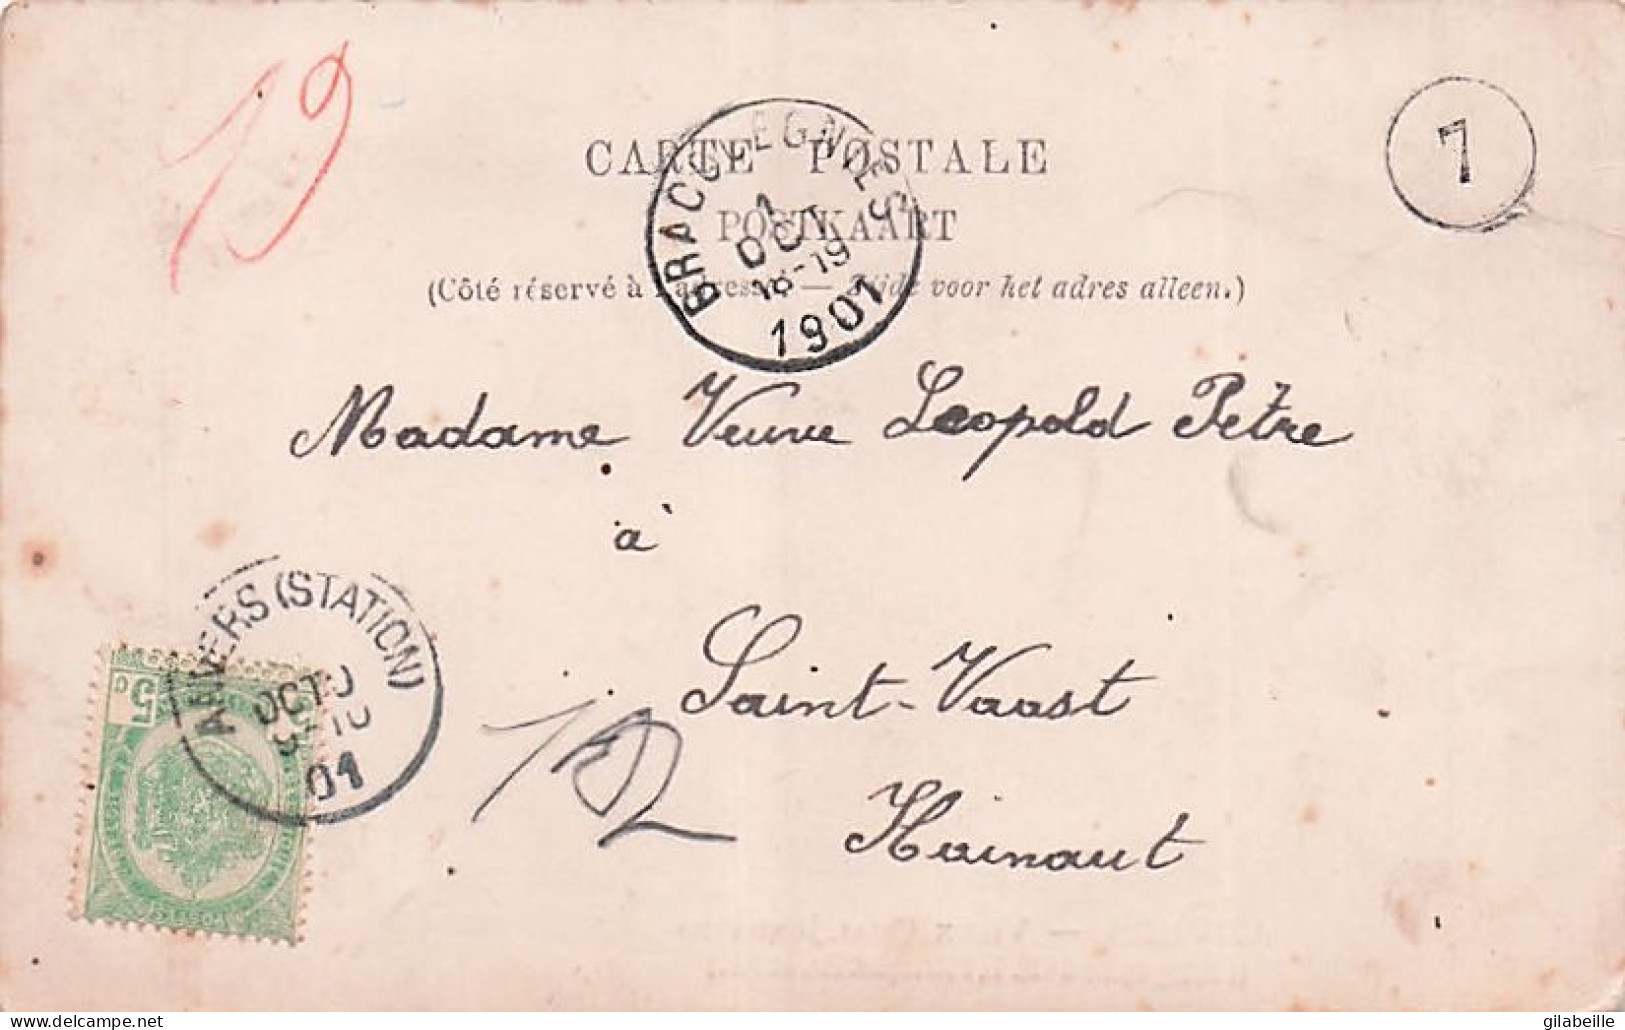 19
CARTE POSTALE
POSTKAART
(Côté réservé à l'adresse. — Zijde voor het adres alleen.)
BRACQUEGNIES
1
OCT
18-19
1901
7
Madame Veuve Leopold Pètre
à
Saint-Vaast
Hainaut
ANVERS (STATION)
OCT
01
5
c
POSTES
12
delcampe.net
gilabeille